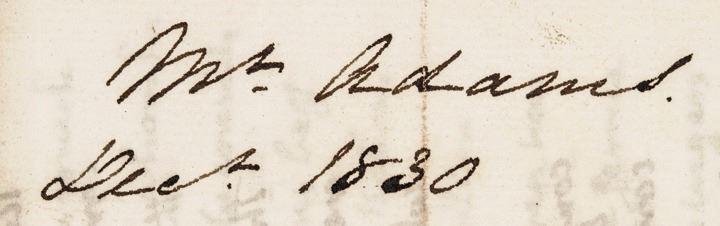 Mr. Adams.
Decr. 1830